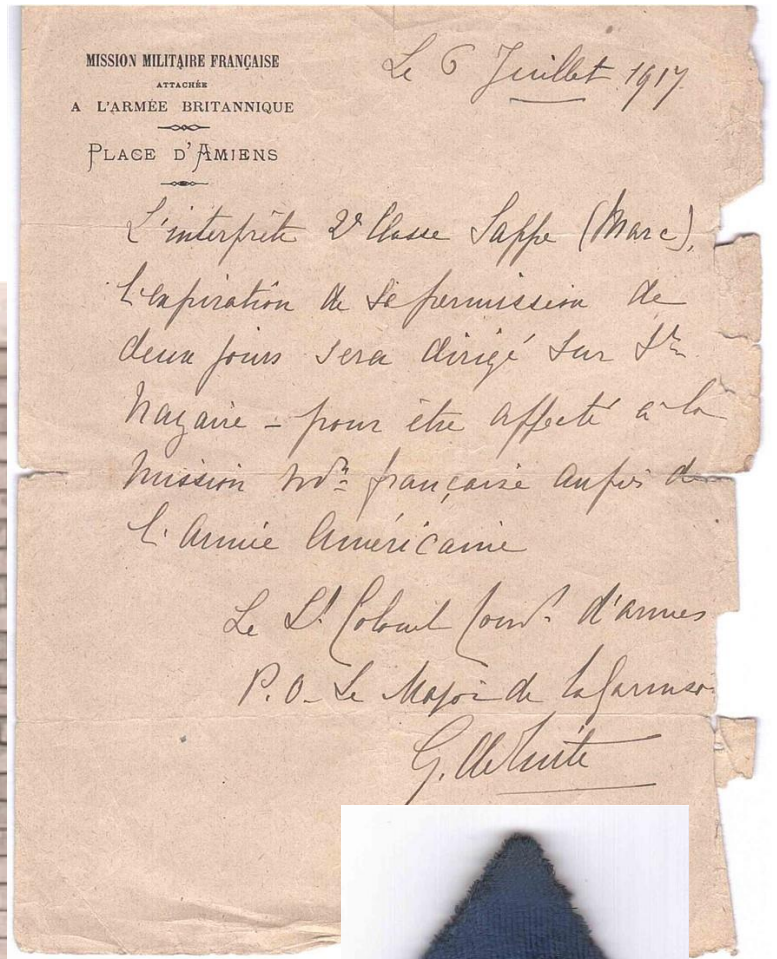 MISSION MILITAIRE FRANÇAISE
ATTACHÉE
A L'ARMÉE BRITANNIQUE
PLACE D'AMIENS
Le 6 Juillet 1917
L'interprète 2e Classe Sappe (Marc),
l'expiration de sa permission de
deux jours sera dirigé sur St
Nazaire - pour être affecté à la
Mission Mre française auprès de
l'Armée Américaine
Le Lt Colonel Comdt d'armes
P.O. Le Major de la Garnison
G.